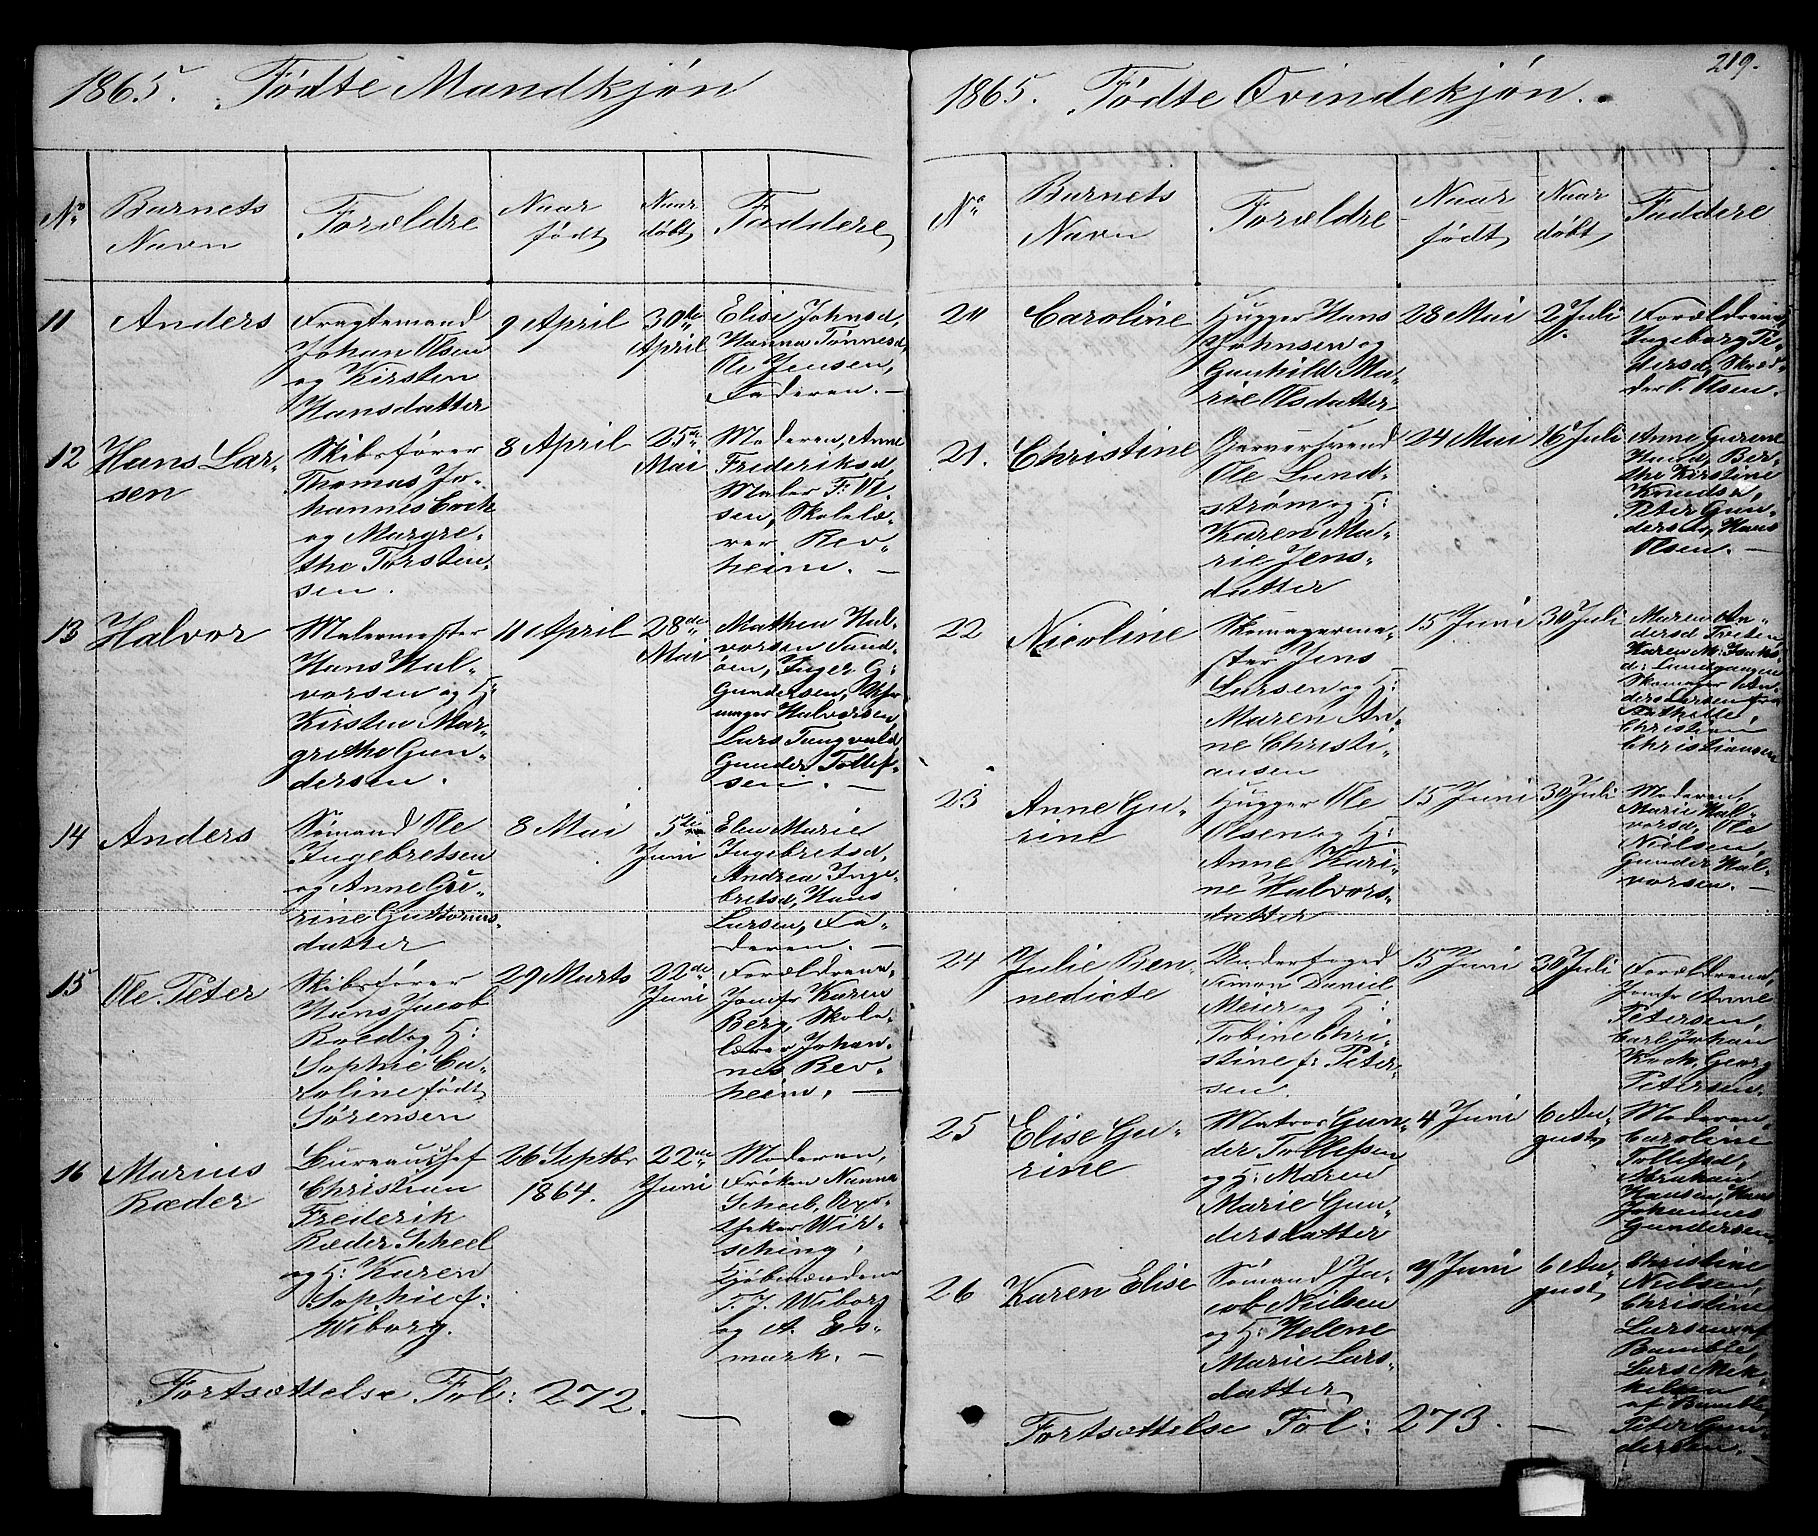 1865. Fødte Mandkjøn
No.
Barnets
Navn
Forældre
Naar
født
Naar
døbt
Faddere
11
Anders
Fragtemand
Johan Olsen
og Kirsten
Hansdatter
9 April
30te
April
Elise Johnsd,
Hanna Tønnesd,
Ole Jensen,
Faderen. —
12
Hans Lar-
sen
Skibsfører
Thomas Jo-
hannes Cock
og Margre-
the Torsten-
sen.
8 April
25de
Mai
Moderen, Anne
Frederiksd,
Maler F: Ol-
sen, Skolelæ-
rer Rev-
heim. —
13
Halvor
Malermester
Hans Hal-
vorsen og H:
Kirsten Mar-
grethe Gun-
dersen.
11 April
28de
Mai
Mathea Hal-
vorsen Sand-
øen, Inger G:
Gundersen,
mager Halvorsen,
Lars Tangvald
Gunder Tollef-
sen. —
14
Anders
Sømand Ole
Ingebretsen
og Anne Gu-
rine Guttorms-
datter
8 Mai
5te
Juni
Elen Marie
Ingebretsd,
Andrea Inge-
bretsd, Hans
Larsen, Fa-
deren. —
15
Ole Peter
Skibsfører
Hans Jacob
Roed og H:
Sophie Ca-
roline født
Sørensen
29 Marts
22de
Juni
Forældrene,
Jomfr Karen
Berg, Skole-
lærer Johan-
nes Rev-
heim. —
16
Marius
Ræder
Bureauchef
Christian
Frederik
Ræder Scheel
og H: Karen
Sophie f:
Wiborg.
26 Septbr
1864.
22de
Juni
Moderen,
Frøken Nanna
Scheel, Apo-
theker Wir-
sching,
Kjøbmændene
T. J. Wiborg
og A. Es-
mark. —
Fortsættelse Fol: 272. —
219.
1865. Fødte Qvindekjøn.
No.
Barnets
Navn
Forældre
Naar
født
Naar
døbt
Faddere
20
Caroline
Hugger Hans
Johnsen og
Gunhild Ma-
rie Olsdatter
28 Mai
2 Juli
Forældrene,
Ingeborg Pe-
tersd, Skræd-
der P. Olsen.
21.
Christine
Garversvend
Ole Lund-
strøm og H:
Karen Ma-
rie Jens-
datter
24 Mai
16 Juli
Anne Gurene
Hand, Ber-
the Kirstine
Knudsd,
Peter Gun-
dersen, Hans
Olsen. —
22
Nicoline
Skomagerme-
ster Jens
Larsen og H:
Maren An-
ne Christi-
ansen
15 Juni
30 Juli
Maren An-
dersd Tveten,
Karen M: Isaks-
d: Lundgangen
Skomager An-
ders Larsen fra
Christian
Christiansen
23
Anne Gu-
rine
Hugger Ole
Olsen og H:
Anne Kari-
ne Halvors-
datter
15 Juni
30 Juli
Moderen,
Marie Hal-
vorsd, Ole
Nielsen,
Gunder Hal-
vorsen. —
24
Julie Ben-
nedicte
Underfoged
Simon Daniel
Meier og H:
Tobine Chri-
stine f: Peter-
sen.
15 Juni
30 Juli
Forældrene,
Jomfr Anne
Petersen,
Carl Johan
Koch, Georg
Petersen.
25
Elise Gu-
rine
Matros Gun-
der Tollefsen
og H: Maren
Marie Gun-
dersdatter
4 Juni
6 Au-
gust
Moderen
Caroline
Tollefsd,
Abraham
Hansen, Hans
Johannes
Gundersen
26
Karen Elise
Sømand Ja-
cob Nielsen
og H: Helene
Marie Lars-
datter
9 Juni
6 Au-
gust
Christine
Nielsen,
Christine
Larsen af
Bamble,
Lars Mik-
kelsen
af Bamble,
Peter Gun-
dersen.
Fortsættelse Fol: 273. —